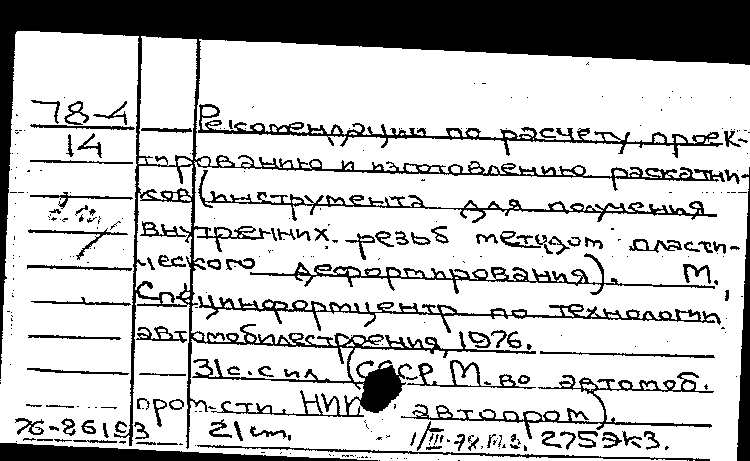 78-4 Рекомендации по расчету, проек-
14 тированию и изготовлению раскатни-
ков (инструмента для получения
внутренних резьб методом пласти-
ческого деформирования). М.,
Специнформцентр по технологии
автомобилестроения, 1976.
31с. с ил. (СССР. М-во автомоб.
пром-сти. НИИ автопром).
76-86193 21 cm. 1/III-78.М.З. 275экз.